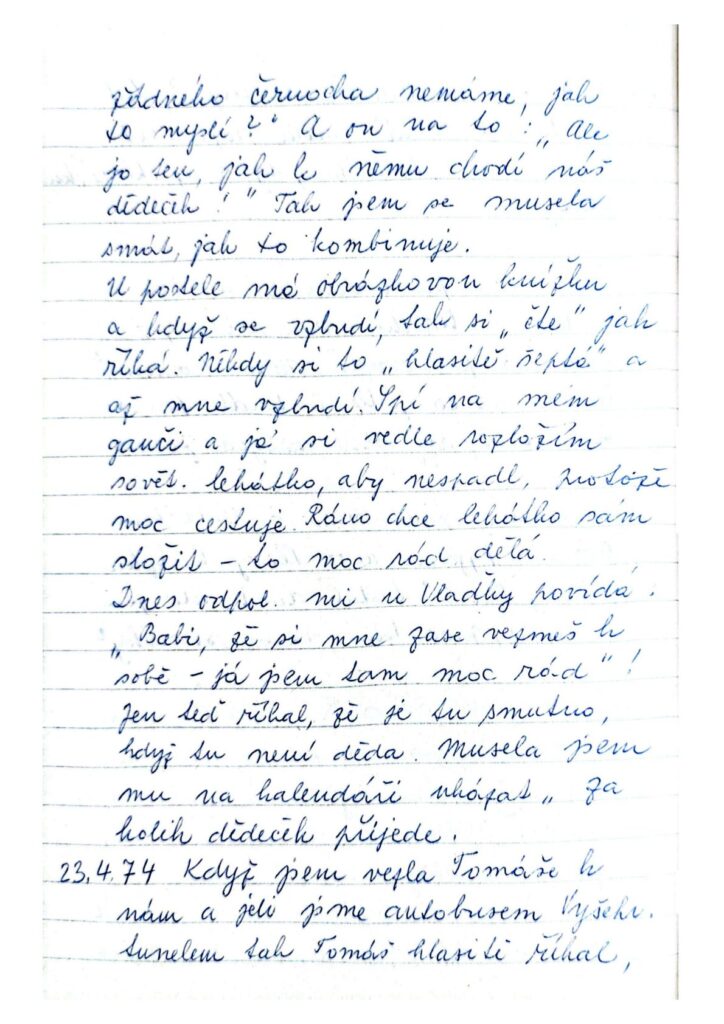 žádného černocha nemáme, jak
to myslí?" A on na to: „Ale
jo ten, jak k němu chodí náš
dědeček!" Tak jsem se musela
smát, jak to kombinuje.
U postele má obrázkovou knížku
a když se vzbudí, tak si „čte" jak
říká. Někdy si to „hlasitě šeptá" a
až mne vzbudí. Spí na mém
gauči a já si vedle rozložím
sovět. lehátko, aby nespadl, protože
moc cestuje. Ráno chce lehátko sám
složit – to moc rád dělá.
Dnes odpol. mi u Vladky povídá:
„Babi, že si mne zase vezmeš k
sobě – já jsem tam moc rád"!
Jen teď říkal, že je tu smutno,
když tu není děda. Musela jsem
mu na kalendáři ukázat „za
kolik dědeček přijede.
23.4.74 Když jsem vezla Tomáše k
nám a jeli jsme autobusem Vyšehr.
tunelem tak Tomáš hlasitě říkal,